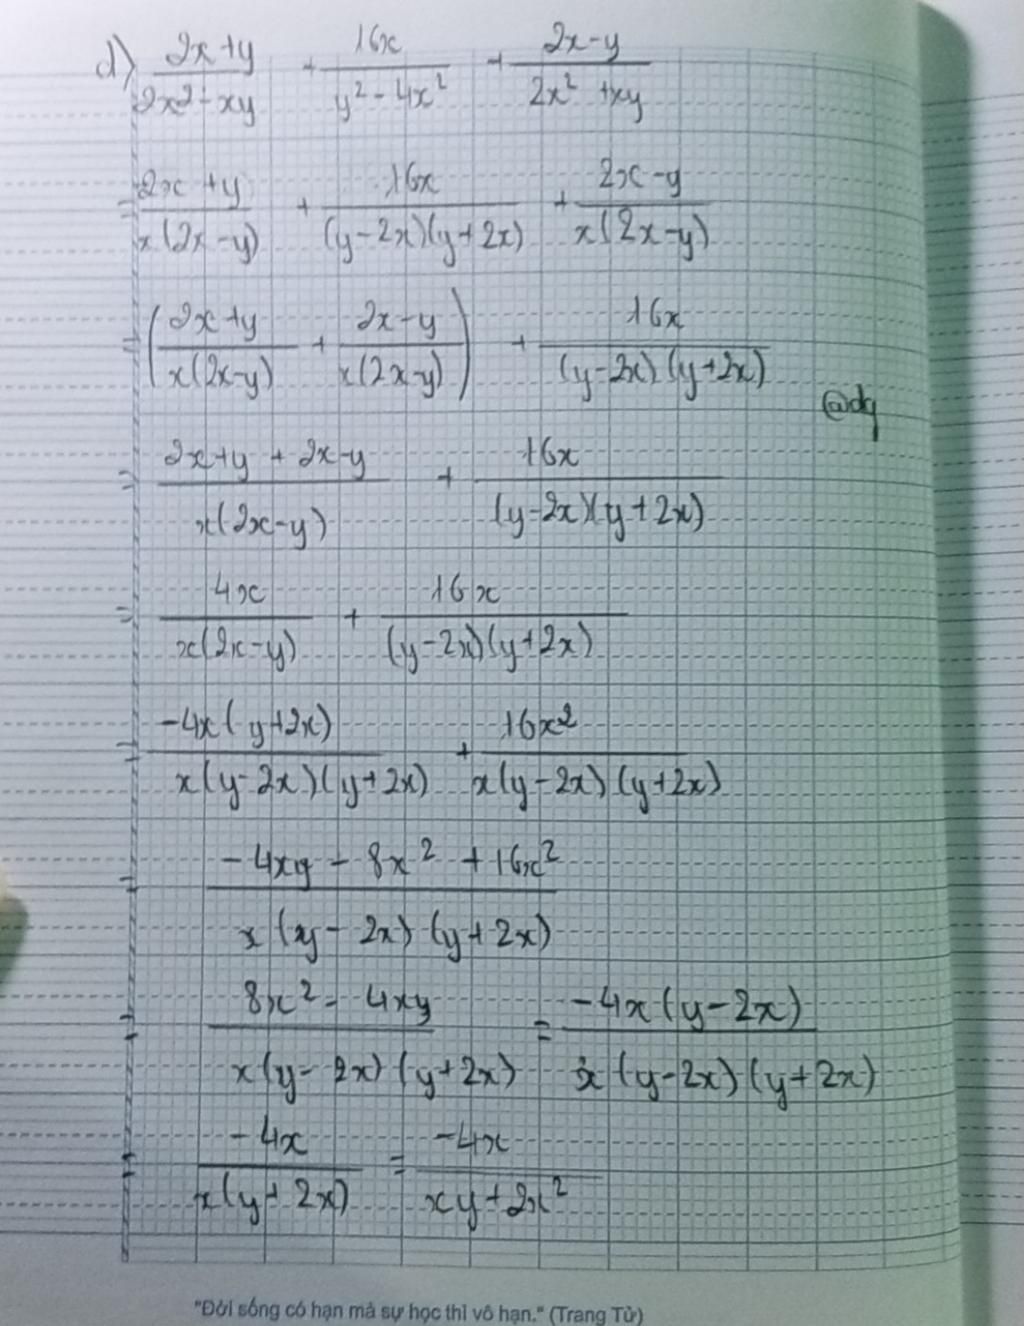 d) (2x+y)/(2x²-xy) + 16x/(y²-4x²) + (2x-y)/(2x²+xy)
= (2x+y)/(x(2x-y)) + 16x/((y-2x)(y+2x)) + (2x-y)/(x(2x-y))
= ((2x+y)/(x(2x-y)) + (2x-y)/(x(2x-y))) + 16x/((y-2x)(y+2x))
@dq
= (2x+y+2x-y)/(x(2x-y)) + 16x/((y-2x)(y+2x))
= 4x/(x(2x-y)) + 16x/((y-2x)(y+2x))
= -4x(y+2x)/(x(y-2x)(y+2x)) + 16x²/(x(y-2x)(y+2x))
= (-4xy-8x²+16x²)/(x(y-2x)(y+2x))
= (8x²-4xy)/(x(y-2x)(y+2x)) = -4x(y-2x)/(x(y-2x)(y+2x))
= -4x/(x(y+2x)) = -4x/(xy+2x²)
"Đời sống có hạn mà sự học thì vô hạn." (Trang Tử)